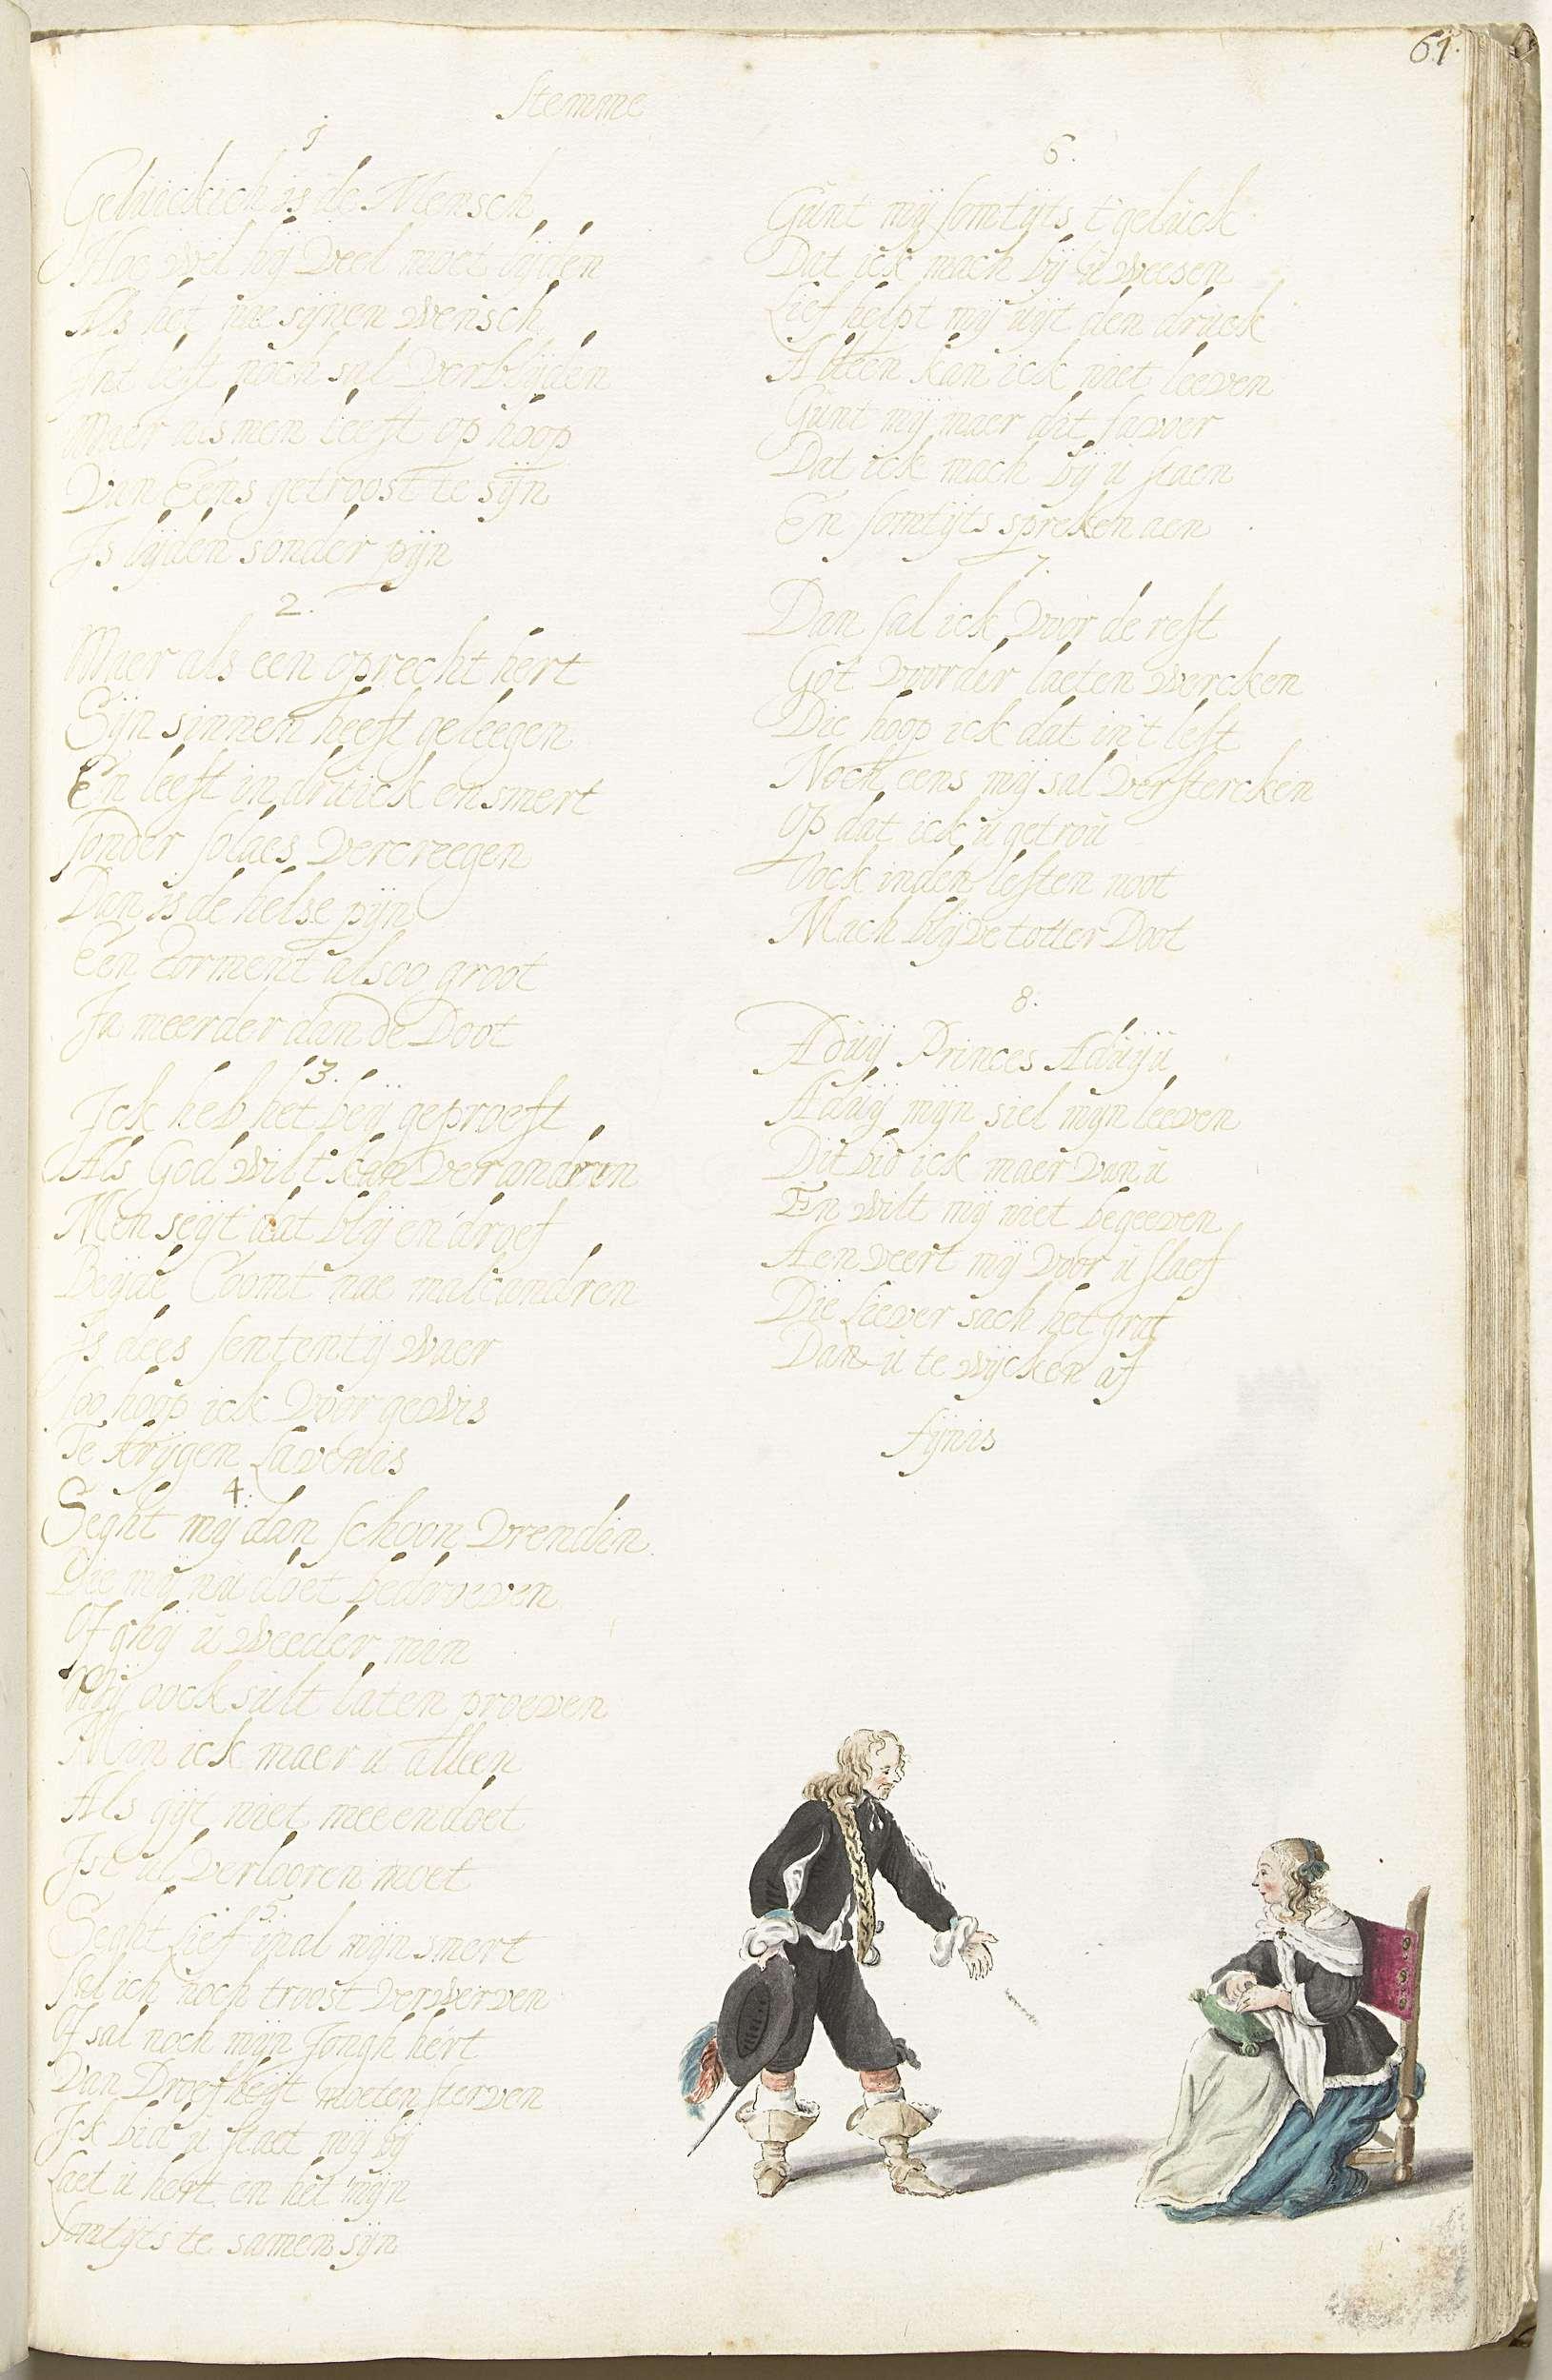 61.
Stemme
1
Geluickich is de Mensch
Hoe wel hij Veel moet lijden
Als het nae sijnen wensch
Int lest noch sal Verblijden
Maer als men leeft op hoop
Van Eens getroost te sijn
Is lijden sonder pijn
2.
Maer als een oprecht hert
Sijn sinnen heeft geleegen
En leeft in druick en smert
sonder solaes Vercreegen
Dan is de helse pijn
Een torment alsoo groot
Ja meerder dan de Doot
3.
Ick heb het beij geproeft
Als God wil t kan Verandren
Men seijt dat blij en droef
Beijde Coomt nae malcandren
Is dees sententij waer
soo hoop ick Voor gewis
Te krijgen Lavenis
4.
Seght mij dan schoon Vrendin
Die mij nu doet bedroeven
Of ghij u weeder min
Mij oock sult laten proeven
Min ick maer u alleen
Als gijt niet mee en doet
Ist al Verlooren moet
5.
Seght Lief op al mijn smert
sal ick noch troost Verwerven
Of sal noch mijn Jongh hert
Van Droefheijt moeten sterven
Ick bid u staet mij bij
Laet u hert en het mijn
somtijts te samen sijn
6.
Gunt mij somtijts t'geluck
Dat ick mach bij u weesen
Lief helpt mij uijt den druck
Alleen kan ick niet leeven
Gunt mij maer dit faver
Dat ick mach bij u staen
En somtijts spreken aen
7.
Dan sal ick Voor de rest
Got voorder laeten wercken
Die hoop ick dat in't lest
Noch eens mij sal Verstercken
Op dat ick u getrou
Oock inden lesten noot
Mach blijve totter Doot
8.
Aduij Princes Aduij u
Aduij mijn siel mijn leeven
Dit bid ick maer van u
En wilt mij niet begeeven
Aenveert mij Voor u slaef
Die Liever sach het graf
Dan u te wijcken af
fijnis